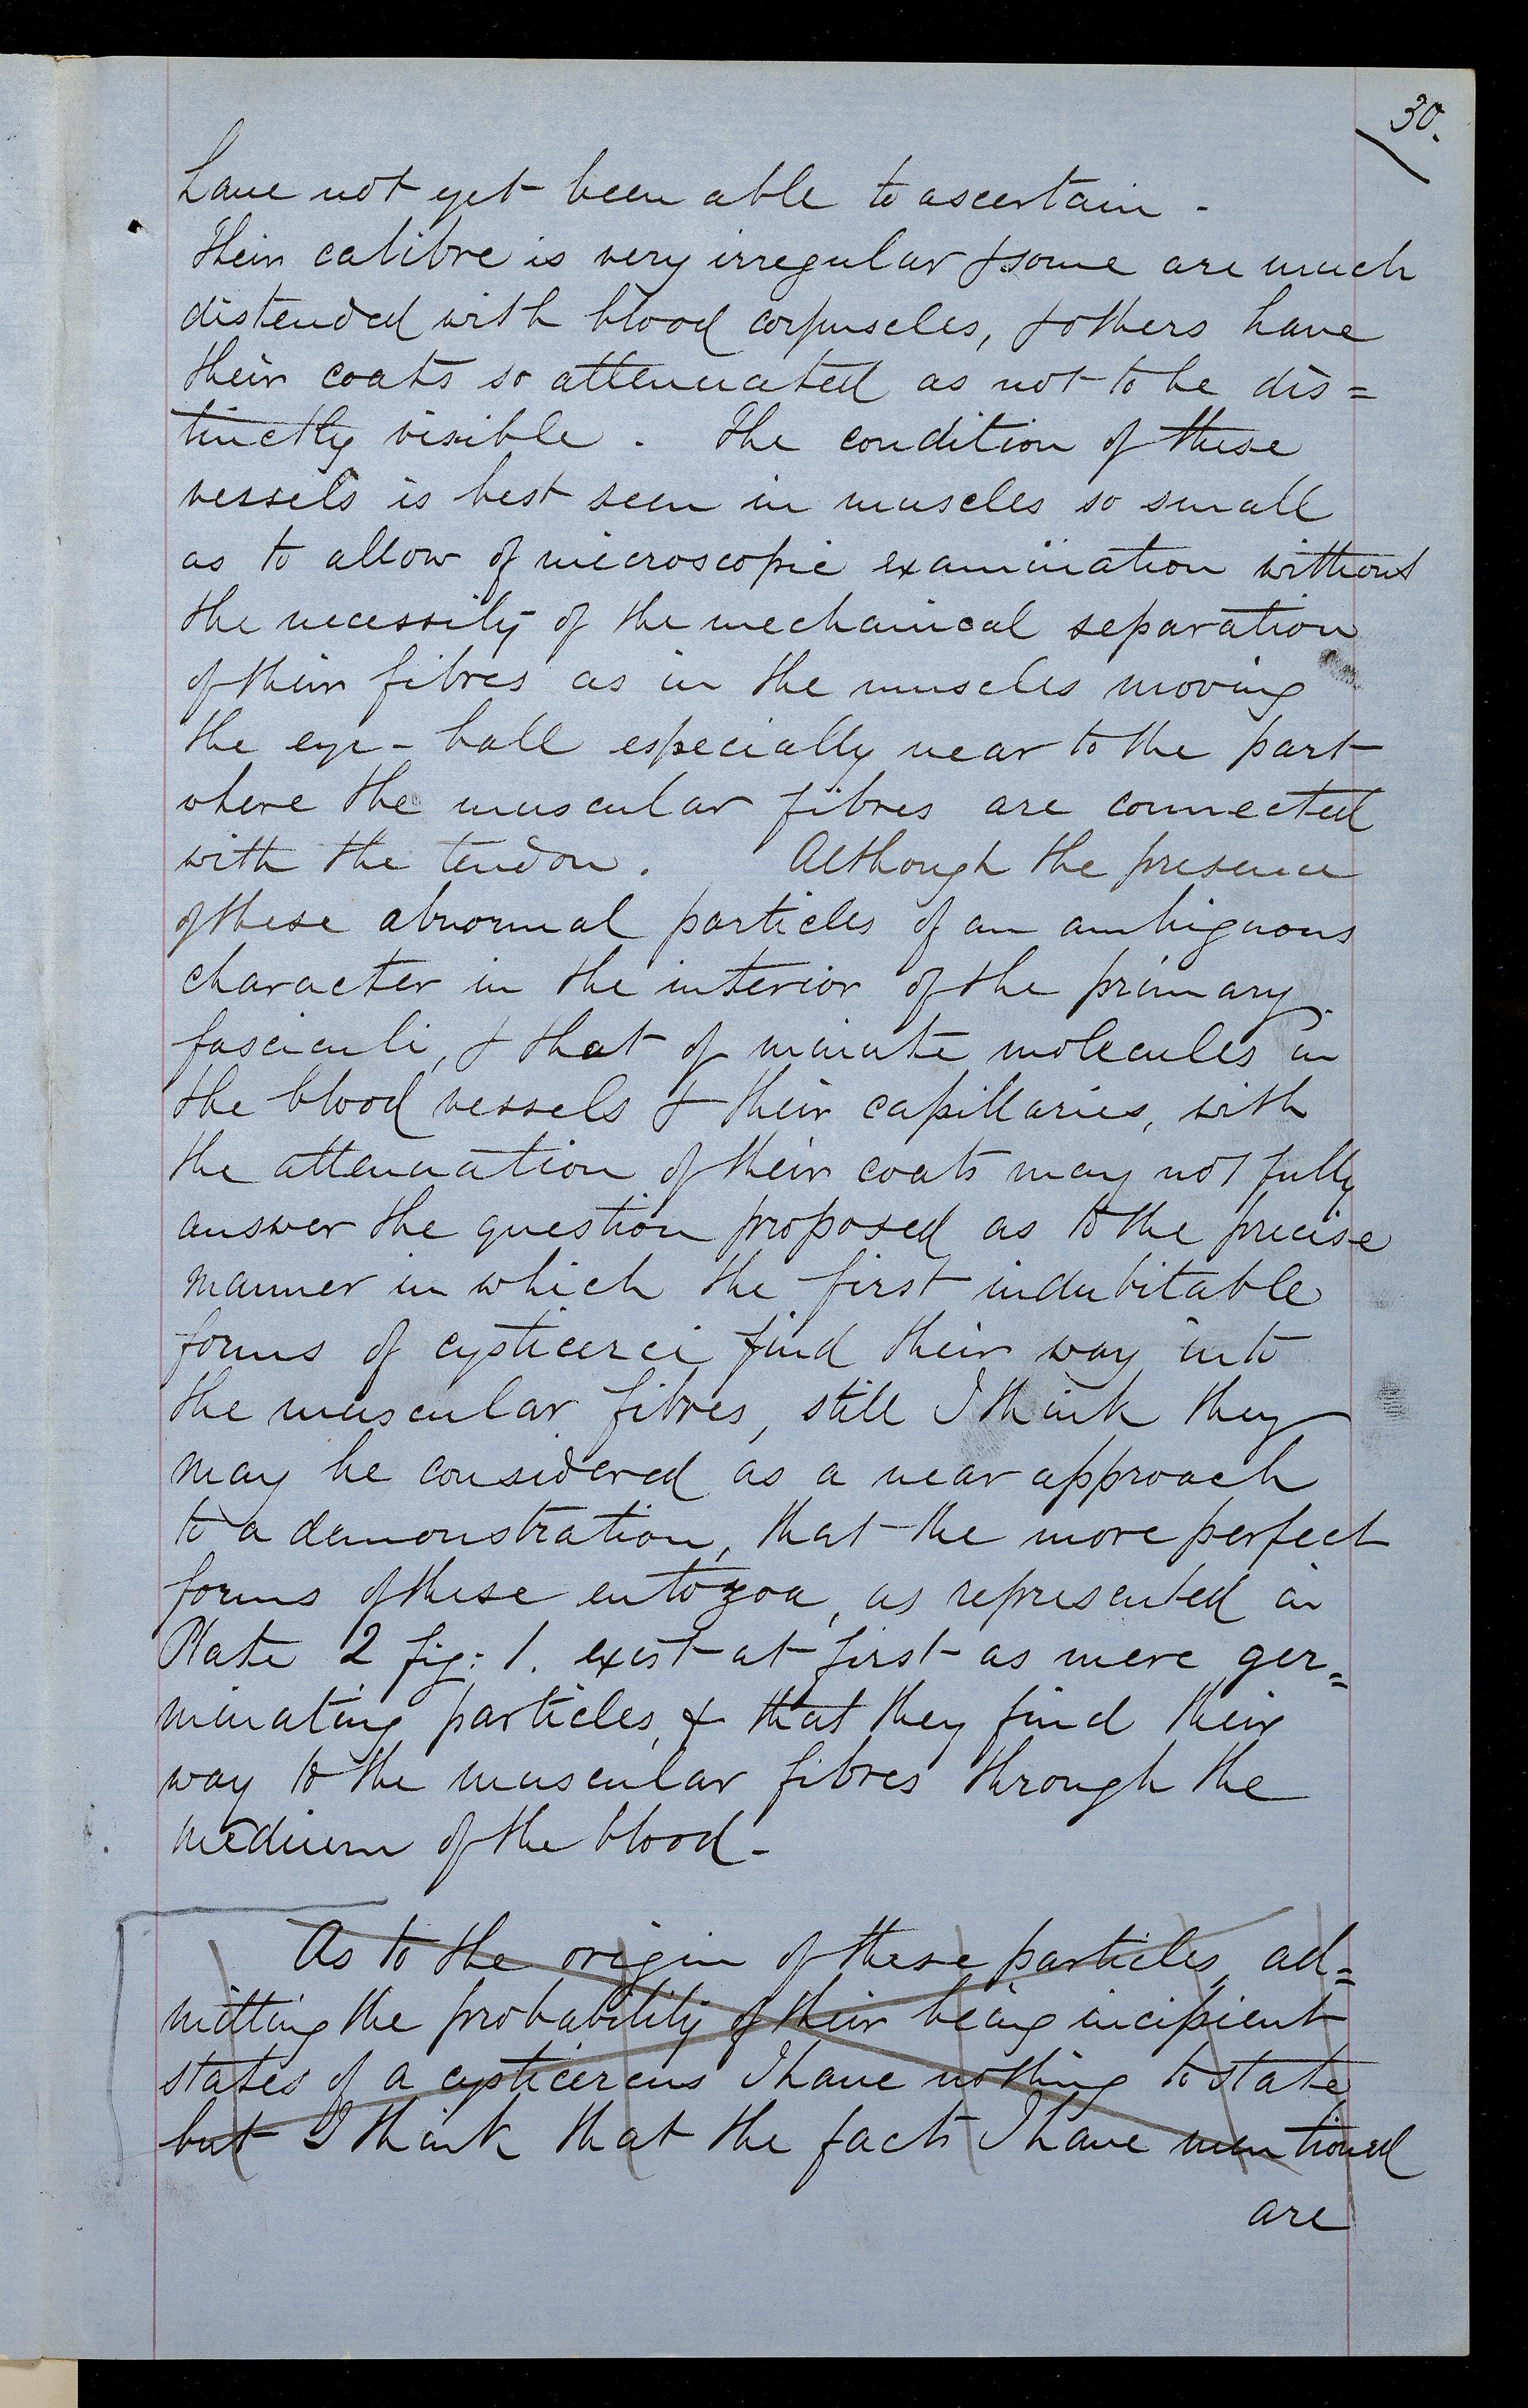 30.
have not yet been able to ascertain -
Their calibre is very irregular & some are much
distended with blood corpuscles, & others have
their coats so attenuated as not to be dis=
tinctly visible. The condition of these
vessels is best seen in muscles so small
as to allow of microscopic examination without
the necessity of the mechanical separation
of their fibres as in the muscles moving
the eye-ball especially near to the part
where the muscular fibres are connected
with the tendon. Although the presence
of these abnormal particles of an ambiguous
character in the interior of the primary
fasciculi, & that of minute molecules in
the blood vessels & their capillaries, with
the attenuation of their coats may not fully
answer the question proposed as to the precise
manner in which the first indubitable
forms of cysticerci find their way into
the muscular fibres, still I think they
may be considered as a near approach
to a demonstration, that the more perfect
forms of these entozoa, as represented in
Plate 2 fig: 1. exist at first as mere ger=
minating particles, & that they find their
way to the muscular fibres through the
medium of the blood -
As to the origin of these particles, ad=
mitting the probability of their being incipient
states of a cysticercus I have nothing to state,
but I think that the facts I have mentioned
are